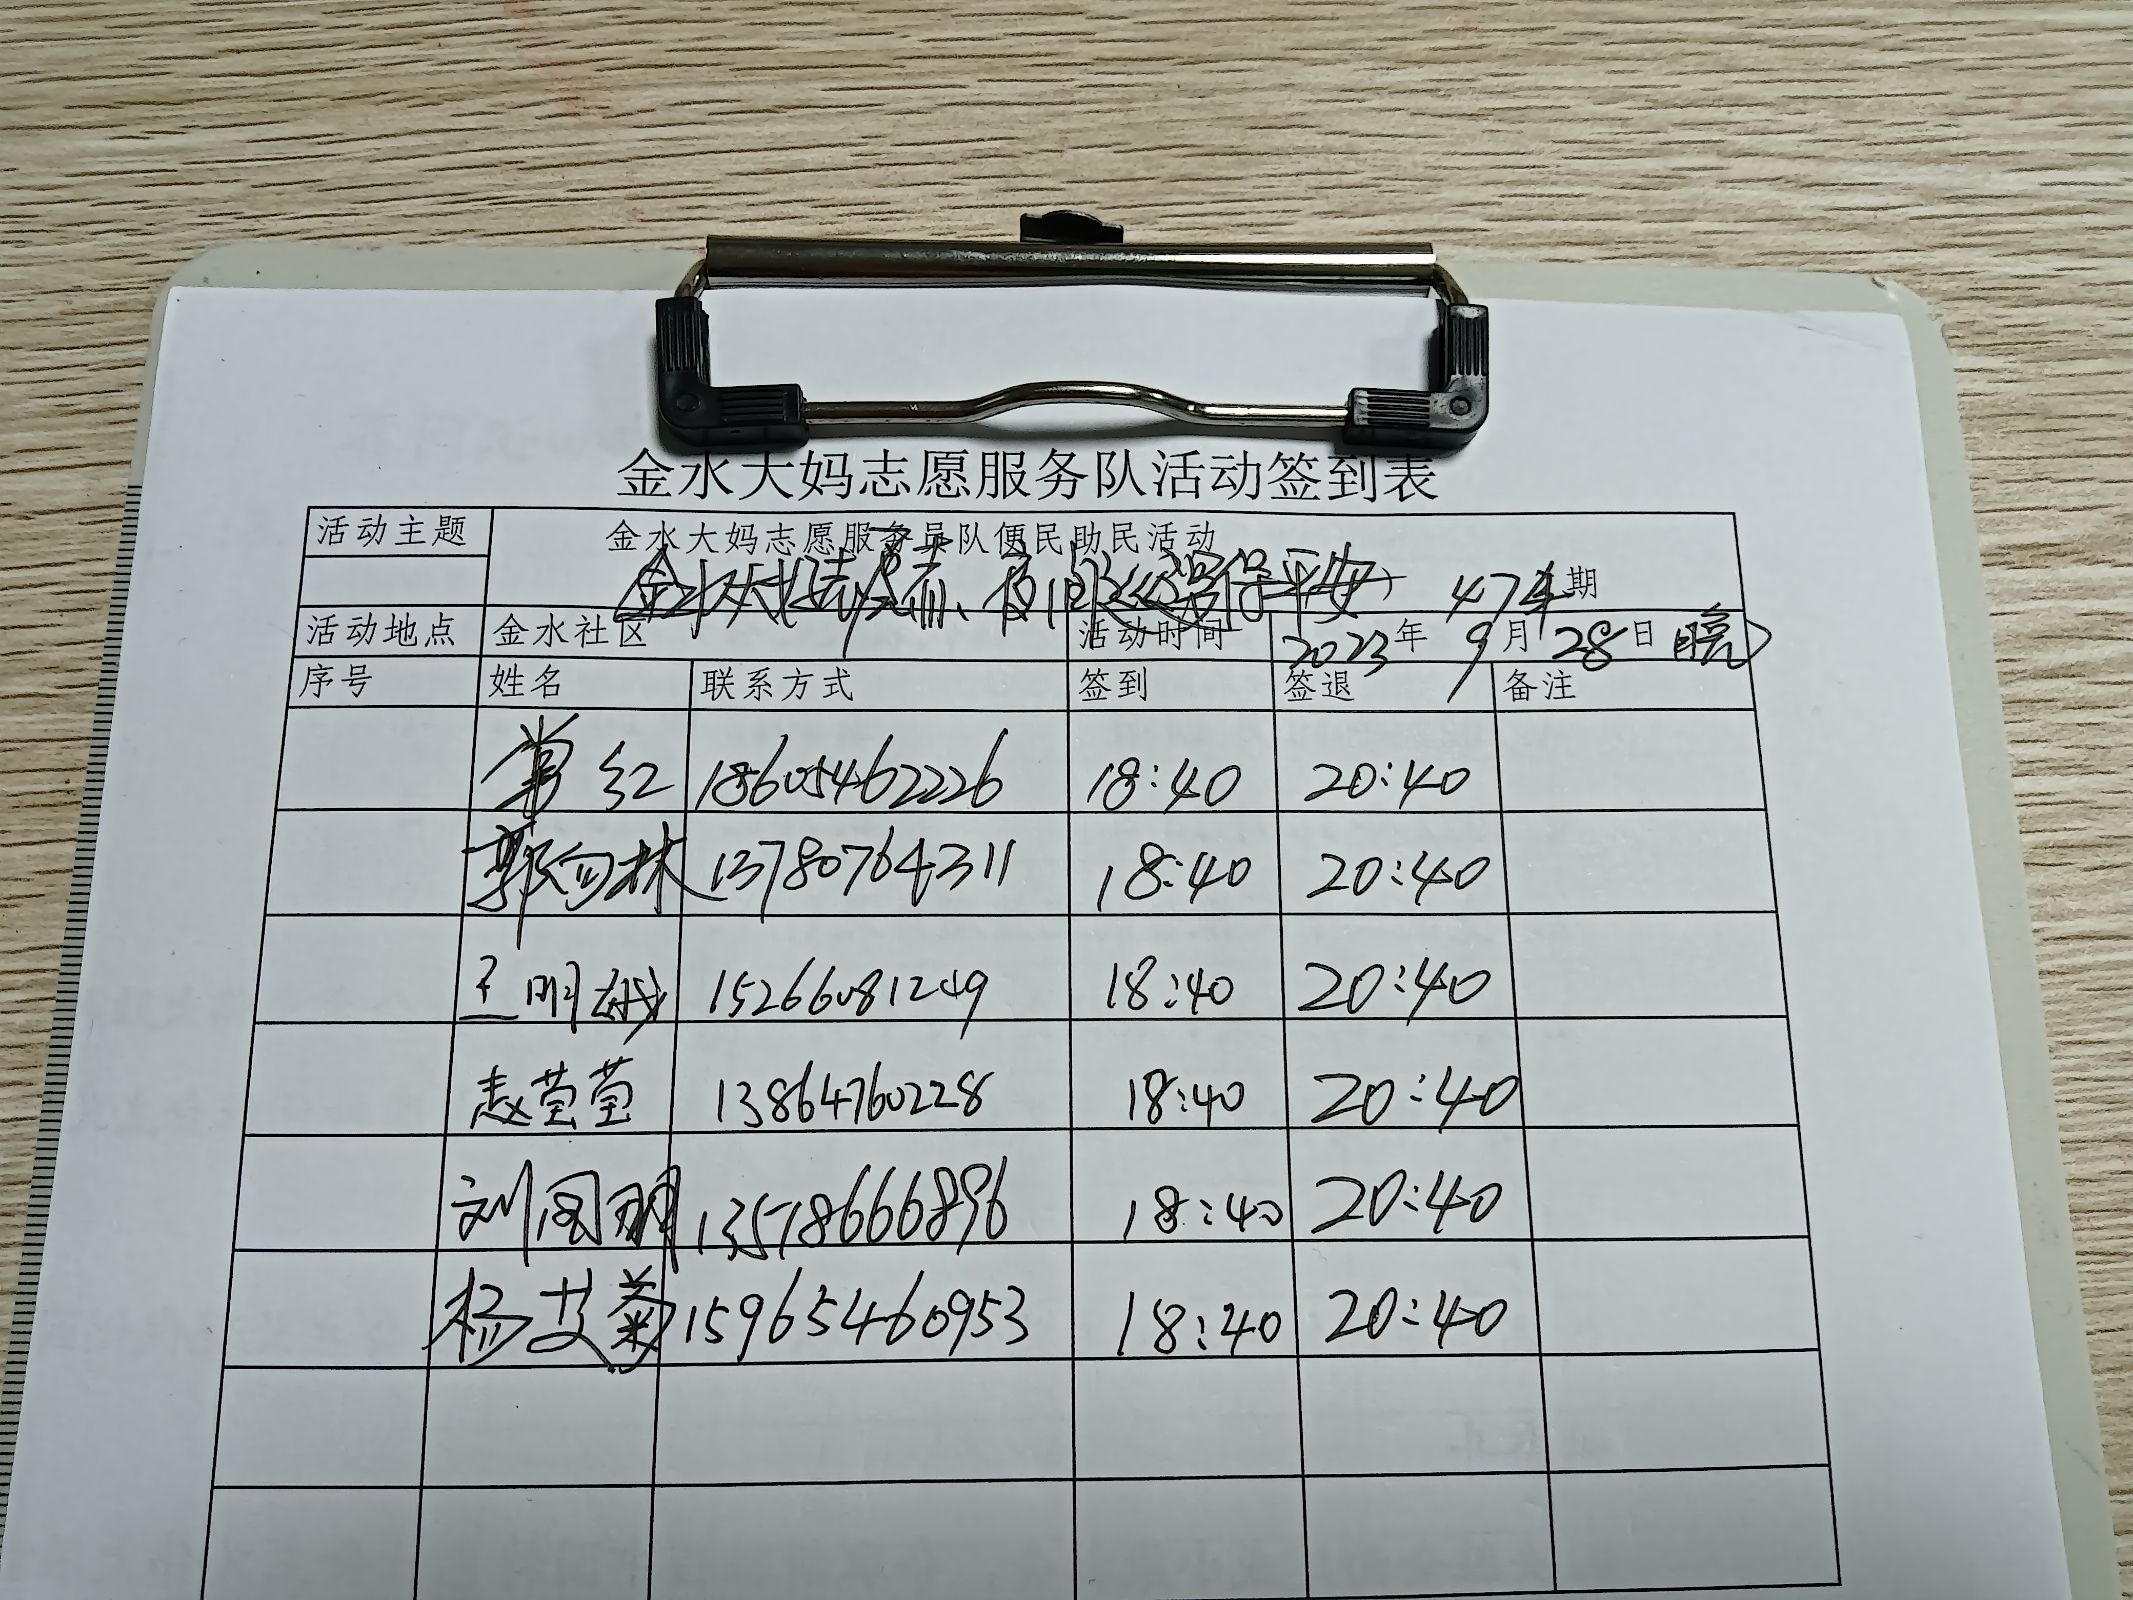 金水大妈志愿服务队活动签到表
活动主题 金水大妈志愿服务员队便民助民活动
夜间巡逻保平安 期
活动地点 金水社区 活动时间 2023年 9月 28日 晚
序号 姓名 联系方式 签到 签退 备注
常红 18605462226 18:40 20:40
郭向林 13780764311 18:40 20:40
王明 15266081249 18:40 20:40
赵莹莹 13864760228 18:40 20:40
刘阁明 13578666896 18:40 20:40
杨艾菊 15965460953 18:40 20:40